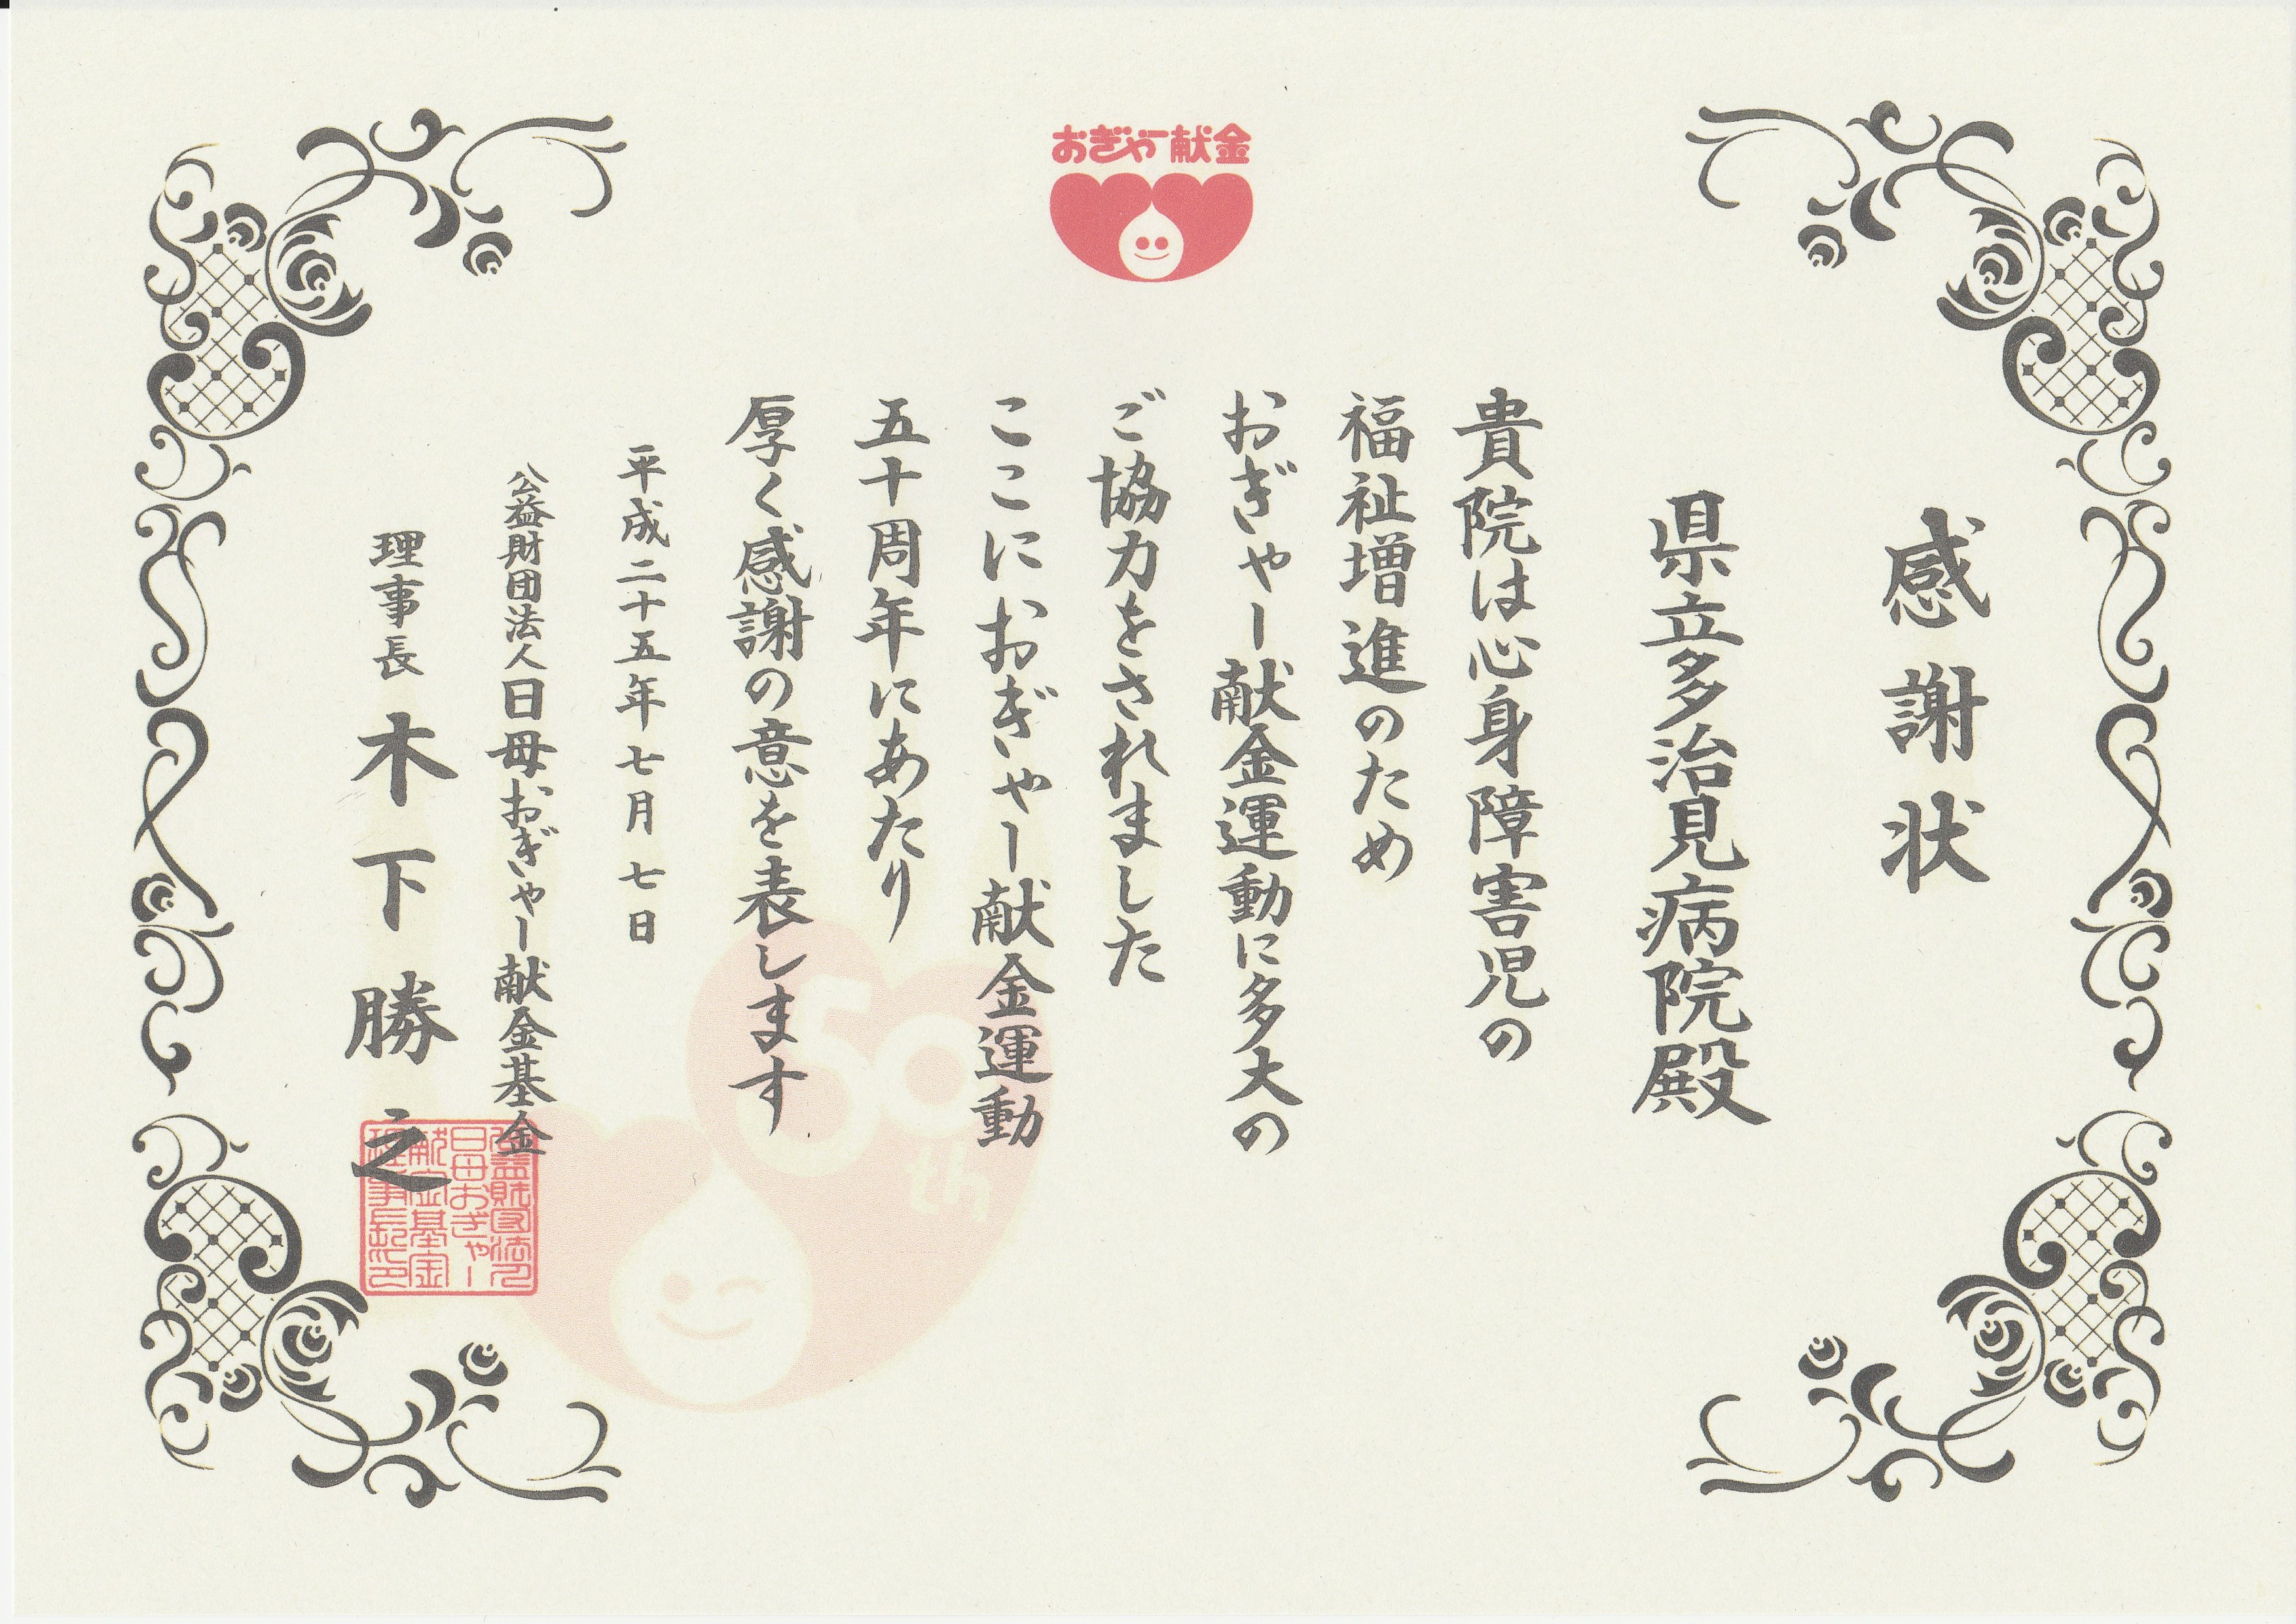 おぎゃー献金
感謝状
県立多治見病院殿
貴院は心身障害児の
福祉増進のため
おぎゃー献金運動に多大の
ご協力をされました
ここにおぎゃー献金運動
五十周年にあたり
厚く感謝の意を表します
平成二十五年七月七日
公益財団法人日母おぎゃー献金基金
理事長 木下勝之
50th
公益財団法人
日母おぎゃー
献金基金
理事長印